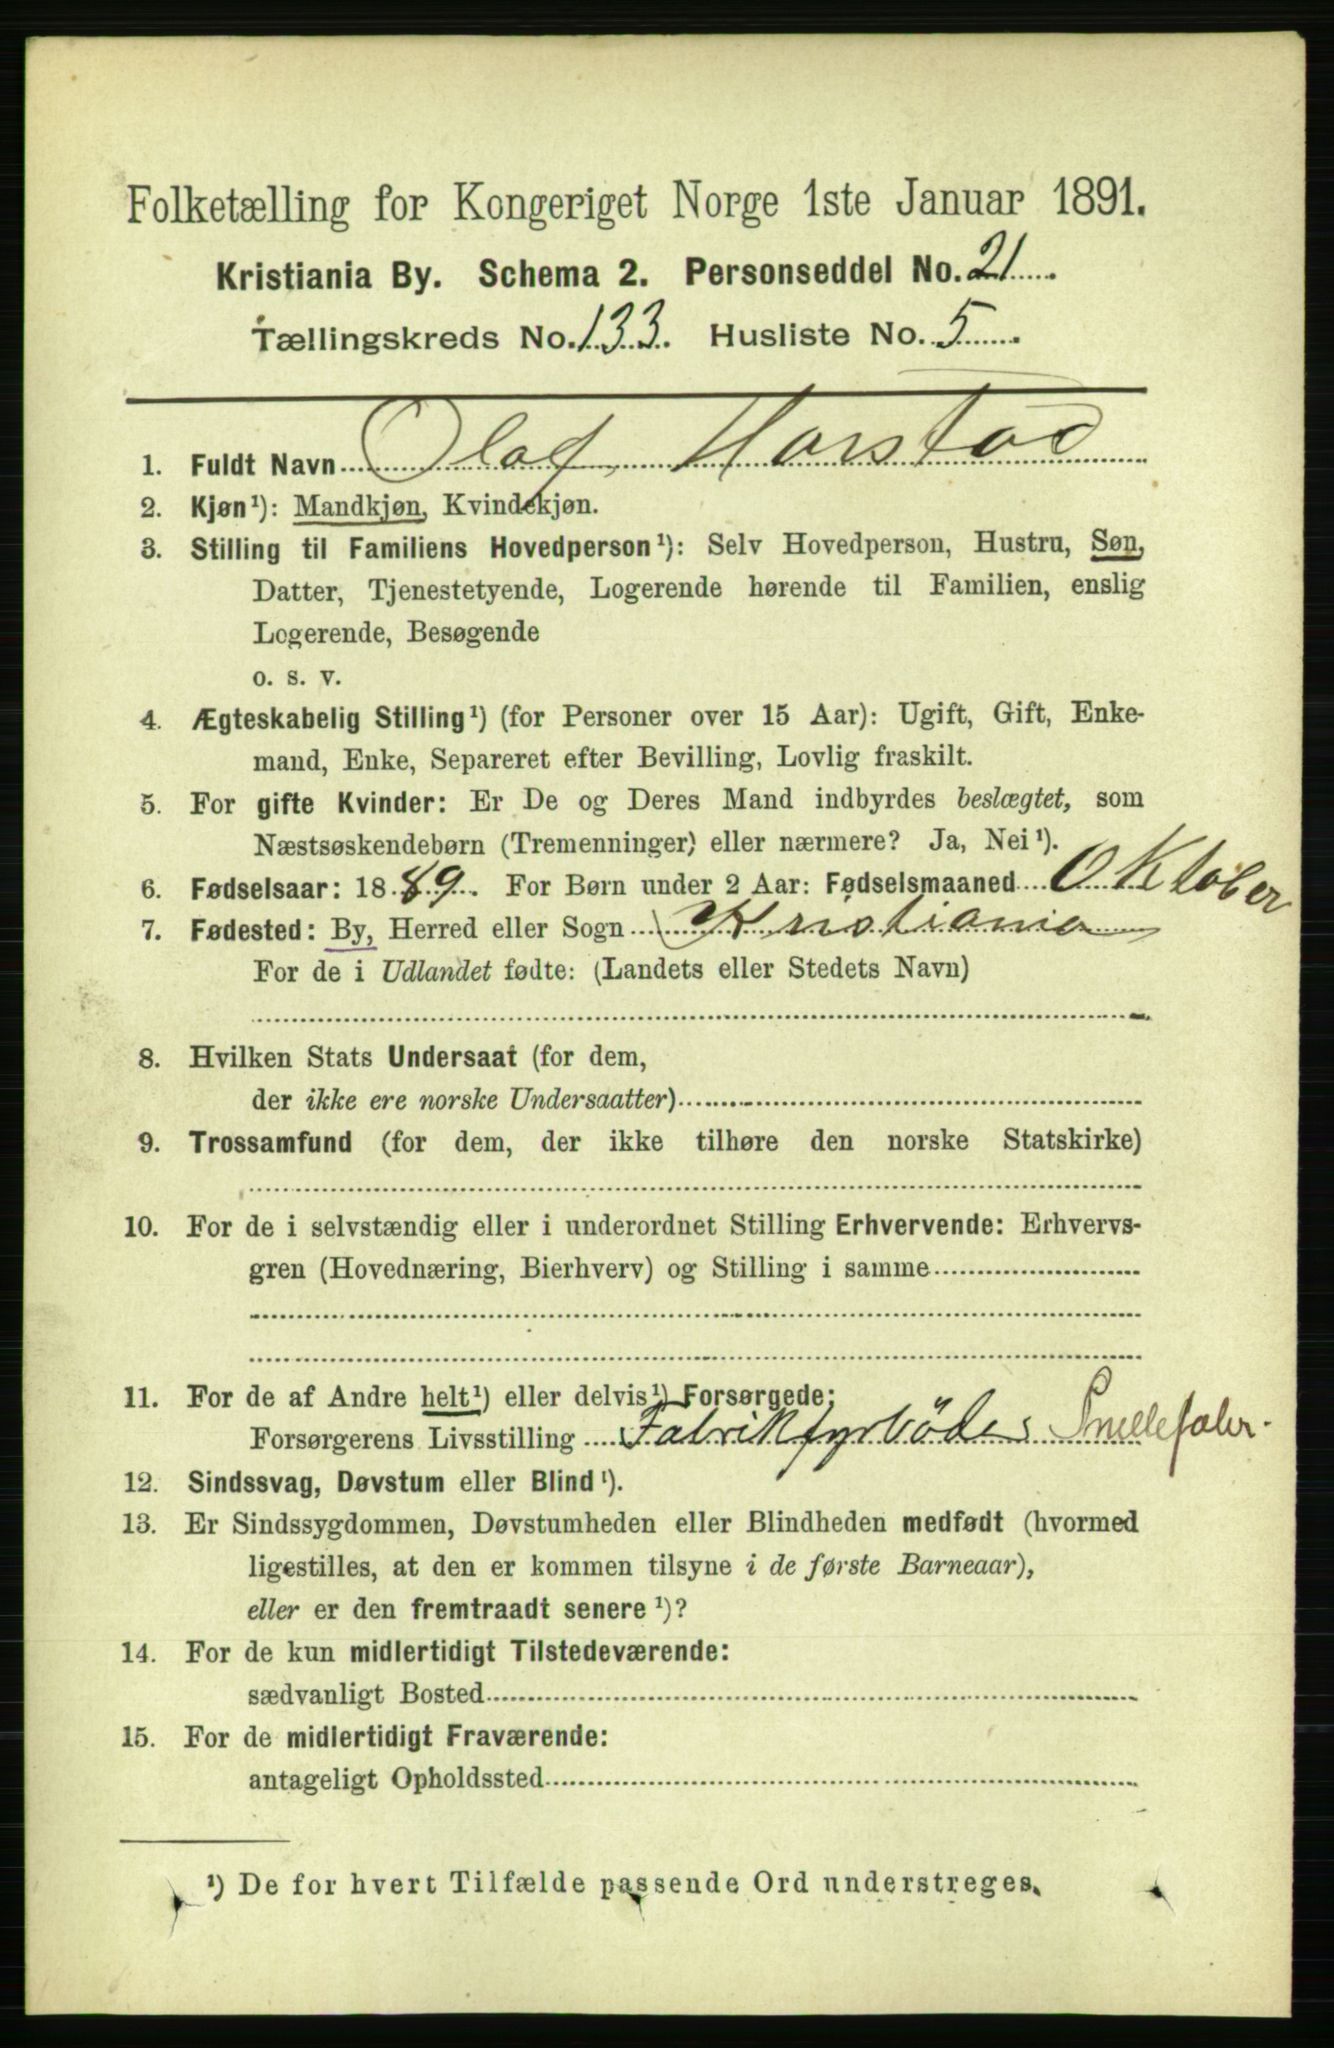 Folketælling for Kongeriget Norge 1ste Januar 1891.
Kristiania By. Schema 2. Personseddel No. 21
Tællingskreds No. 133. Husliste No. 5
1. Fuldt Navn Olaf Harstad
2. Kjøn¹): Mandkjøn, Kvindekjøn.
3. Stilling til Familiens Hovedperson¹): Selv Hovedperson, Hustru, Søn,
Datter, Tjenestetyende, Logerende hørende til Familien, enslig
Logerende, Besøgende
o. s. v.
4. Ægteskabelig Stilling¹) (for Personer over 15 Aar): Ugift, Gift, Enke-
mand, Enke, Separeret efter Bevilling, Lovlig fraskilt.
5. For gifte Kvinder: Er De og Deres Mand indbyrdes beslægtet, som
Næstsøskendebørn (Tremenninger) eller nærmere? Ja, Nei¹).
6. Fødselsaar: 1889. For Børn under 2 Aar: Fødselsmaaned Oktober
7. Fødested: By, Herred eller Sogn Kristiania
For de i Udlandet fødte: (Landets eller Stedets Navn)
8. Hvilken Stats Undersaat (for dem,
der ikke ere norske Undersaatter)
9. Trossamfund (for dem, der ikke tilhøre den norske Statskirke)
10. For de i selvstændig eller i underordnet Stilling Erhvervende: Erhvervs-
gren (Hovednæring, Bierhverv) og Stilling i samme
11. For de af Andre helt¹) eller delvis¹) Forsørgede:
Forsørgerens Livsstilling Fabrikfyrböder
12. Sindssvag, Døvstum eller Blind¹).
13. Er Sindssygdommen, Døvstumheden eller Blindheden medfødt (hvormed
ligestilles, at den er kommen tilsyne i de første Barneaar),
eller er den fremtraadt senere¹)?
14. For de kun midlertidigt Tilstedeværende:
sædvanligt Bosted
15. For de midlertidigt Fraværende:
antageligt Opholdssted
¹) De for hvert Tilfælde passende Ord understreges.